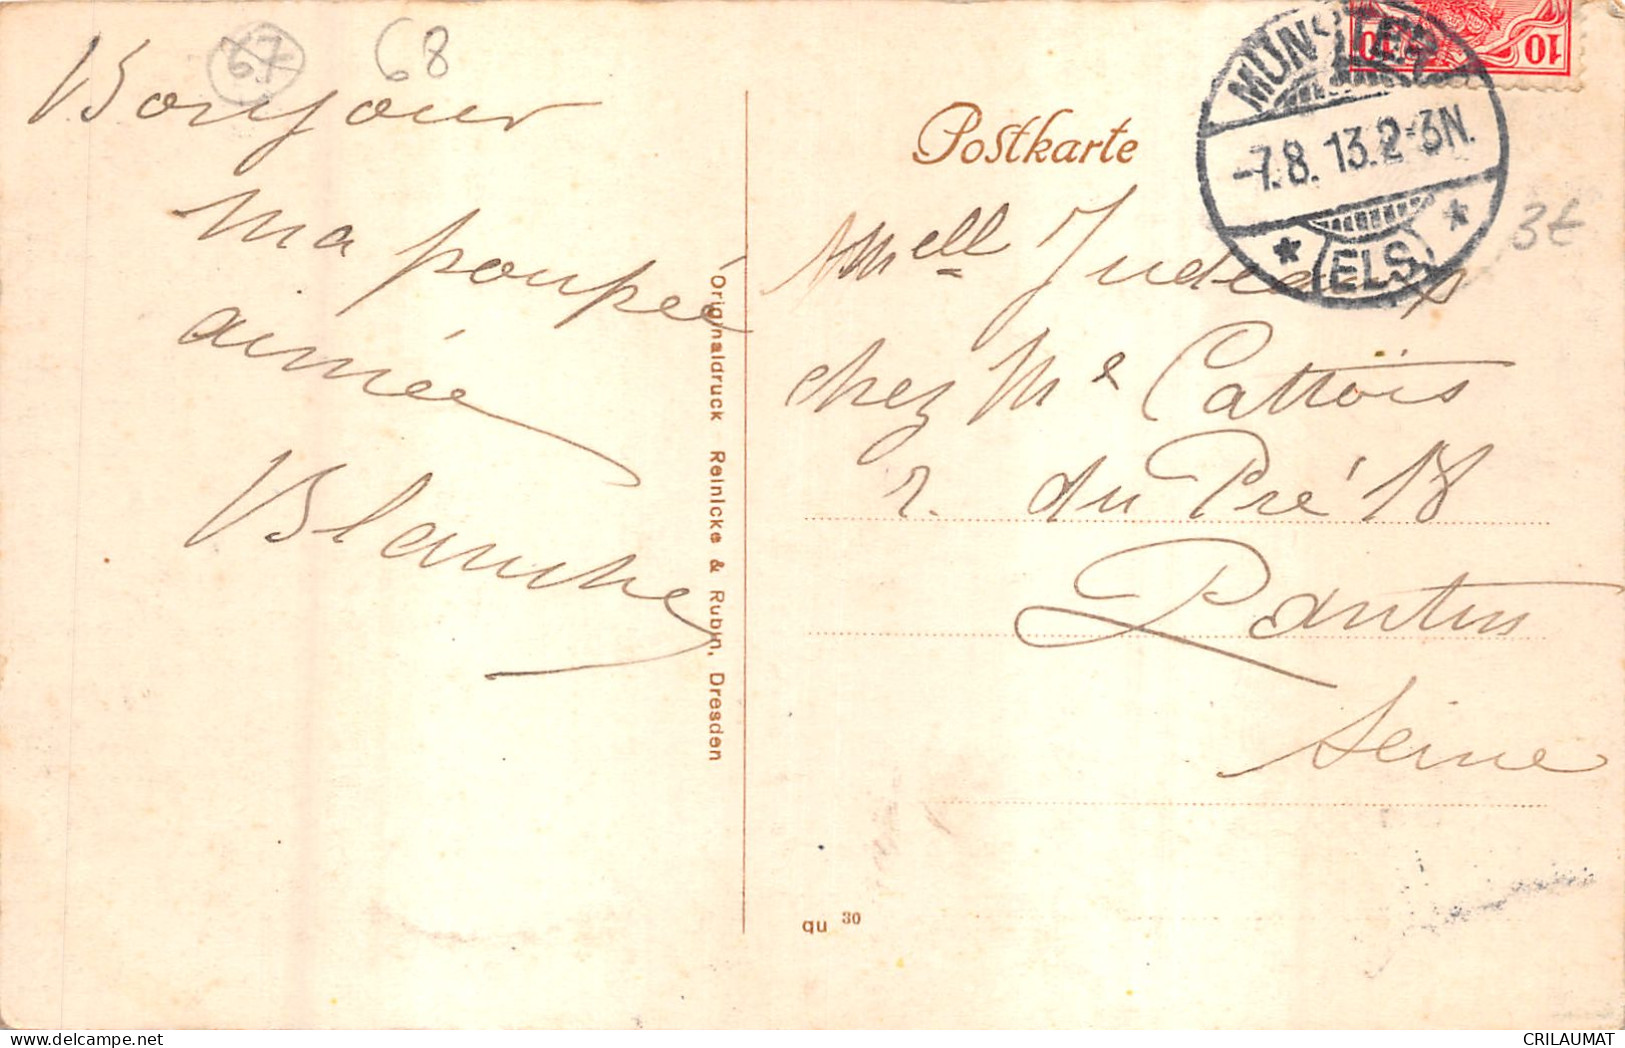 67
68
Bonjour
ma poupée
aimée
Blanche
Originaldruck Reinicke & Rubin, Dresden
Postkarte
10 10
MÜNSTER
-7.8.13.2-3N.
* (ELS) *
3€
Mell
chez Me Cattois
r. du Pré 18
Pantin
Seine
qu 30
CRILAUMAT